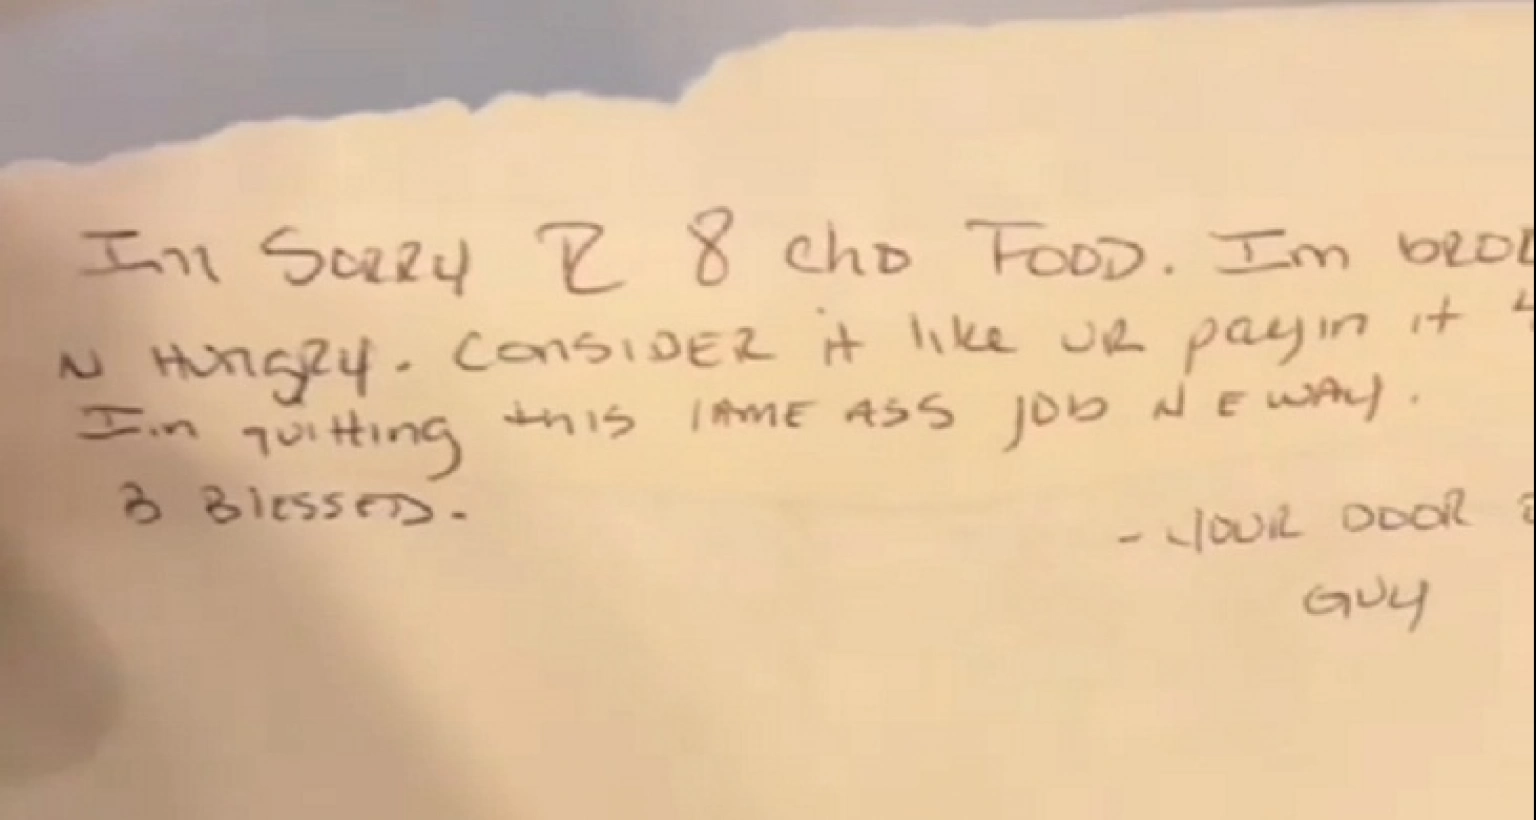 Im Sorry I 8 cho FOOD. Im
N Hungry. CONSIDER it like UR payin it
I.m quitting this lAME ASS JOb N E WAY.
B Blessed.
- YOUR DOOR
GUY